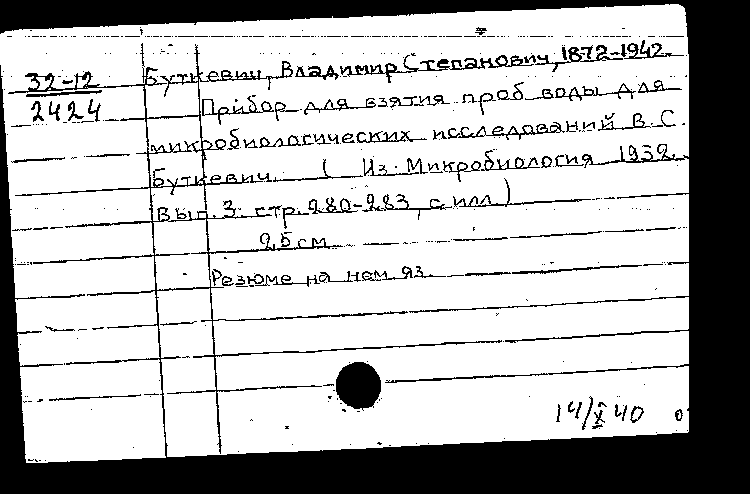 32-12
2424
Буткевич, Владимир Степанович, 1872-1942.
Прибор для взятия проб воды для
микробиологических исследований В.С.
Буткевич. ( Из: Микробиология 1932.
Вып. 3. стр. 280-283, с илл.)
25 см
Резюме на нем. яз.
14/X 40